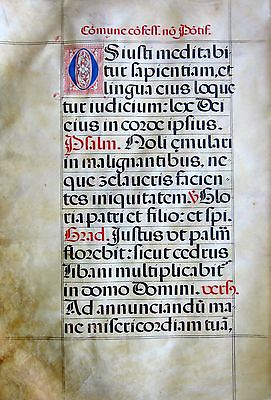 Cõmune cõfess. nõ Põtif.
OS iusti meditabi
tur sapientiam, et
lingua eius loque
tur iudicium: lex Dei
eius in corde ipsius.
Psalm. Noli ęmulari
in malignantibus, ne
que zelaueris facien
tes iniquitatem. ℣ Glo
ria patri et filio: et spi.
Grad. Justus vt palm̃
florebit: sicut cedrus
libani multiplicabit̃
in domo Domini. vers.
Ad annunciandũ ma
ne misericordiam tuã,